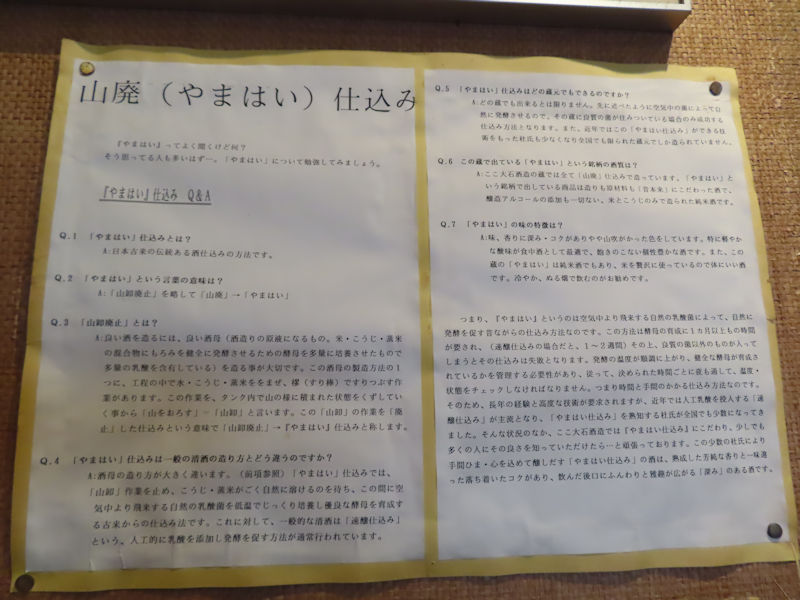 山廃（やまはい）仕込み
『やまはい』ってよく聞くけど何？
そう思ってる人も多いはず…。「やまはい」について勉強してみましょう。
『やまはい』仕込み Q＆A
Q.1 「やまはい」仕込みとは？
A:日本古来の伝統ある酒仕込みの方法です。
Q.2 「やまはい」という言葉の意味は？
A:「山卸廃止」を略して「山廃」→「やまはい」
Q.3 「山卸廃止」とは？
A:良い酒を造るには、良い酒母（酒造りの原液になるもの。米・こうじ・蒸米
の混合物にもろみを健全に発酵させるための酵母を多量に培養させたもので
多量の乳酸を含有している）を造る事が大切です。この酒母の製造方法の１
つに、工程の中で水・こうじ・蒸米をまぜ、櫂（すり棒）ですりつぶす作
業があります。この作業を、タンク内で山の様に積まれた状態をくずしてい
く事から「山をおろす」－「山卸」と言います。この「山卸」の作業を「廃
止」した仕込みという意味で「山卸廃止」→『やまはい』仕込みと称します。
Q.4 「やまはい」仕込みは一般の清酒の造り方とどう違うのですか？
A:酒母の造り方が大きく違います。（前項参照）「やまはい」仕込みでは、
「山卸」作業を止め、こうじ・蒸米がごく自然に溶けるのを待ち、この間に空
気中より飛来する自然の乳酸菌を低温でじっくり培養し優良な酵母を育成す
る古来からの仕込み法です。これに対して、一般的な清酒は「速醸仕込み」
という、人工的に乳酸を添加し発酵を促す方法が通常行われています。
Q.5 「やまはい」仕込みはどの蔵元でもできるのですか？
A:どの蔵でも出来るとは限りません。先に述べたように空気中の菌によって自
然に発酵させるので、その蔵に良質の菌が住みついている場合のみ成功する
仕込み方法となります。また、近年ではこの「やまはい仕込み」ができる技
術をもった杜氏も少なくなり全国でも限られた蔵元でしか造られていません。
Q.6 この蔵で出ている「やまはい」という銘柄の酒質は？
A:ここ大石酒造の蔵では全て「山廃」仕込みで造っています。「やまはい」と
いう銘柄で出している商品は造りも原材料も「昔本来」にこだわった酒で、
醸造アルコールの添加も一切ない、米とこうじのみで造られた純米酒です。
Q.7 「やまはい」の味の特徴は？
A:味、香りに深み・コクがありやや山吹がかった色をしています。特に軽やか
な酸味が食中酒として最適で、飽きのこない個性豊かな酒です。また、この
蔵の「やまはい」は純米酒でもあり、米を贅沢に使っているので体にいい酒
です。冷やか、ぬる燗で飲むのがお勧めです。
つまり、『やまはい』というのは空気中より飛来する自然の乳酸菌によって、自然に
発酵を促す昔ながらの仕込み方法なのです。この方法は酵母の育成に１カ月以上もの時間
が要され、（速醸仕込みの場合だと、１～２週間）その上、良質の菌以外のものが入って
しまうとその仕込みは失敗となります。発酵の温度が順調に上がり、健全な酵母が育成さ
れているかを管理する必要性があり、従って、決められた時間ごとに夜も通して、温度・
状態をチェックしなければなりません。つまり時間と手間のかかる仕込み方法なのです。
そのため、長年の経験と高度な技術が要求されますが、近年では人工乳酸を投入する「速
醸仕込み」が主流となり、「やまはい仕込み」を熟知する杜氏が全国でも少数になってき
ました。そんな状況のなか、ここ大石酒造では『やまはい仕込み』にこだわり、少しでも
多くの人にその良さを知っていただけたら…と頑張っております。この少数の杜氏により
手間ひま・心を込めて醸しだす「やまはい仕込み」の酒は、熟成した芳純な香りと一味違
った落ち着いたコクがあり、飲んだ後口にふんわりと雅趣が広がる「深み」のある酒です。